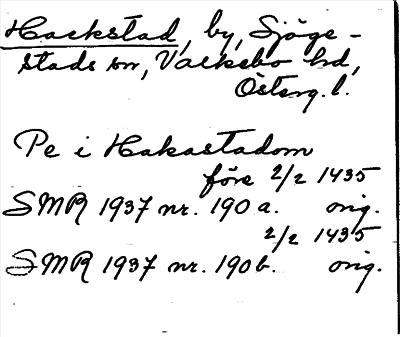 Hackstad, by, Sjöge-
stads sn, Valkebo hd,
Österg. l.
Pe i Hakastadom
före 2/2 1435
SMR 1937 nr. 190 a. orig.
2/2 1435
SMR 1937 nr. 190 b. orig.